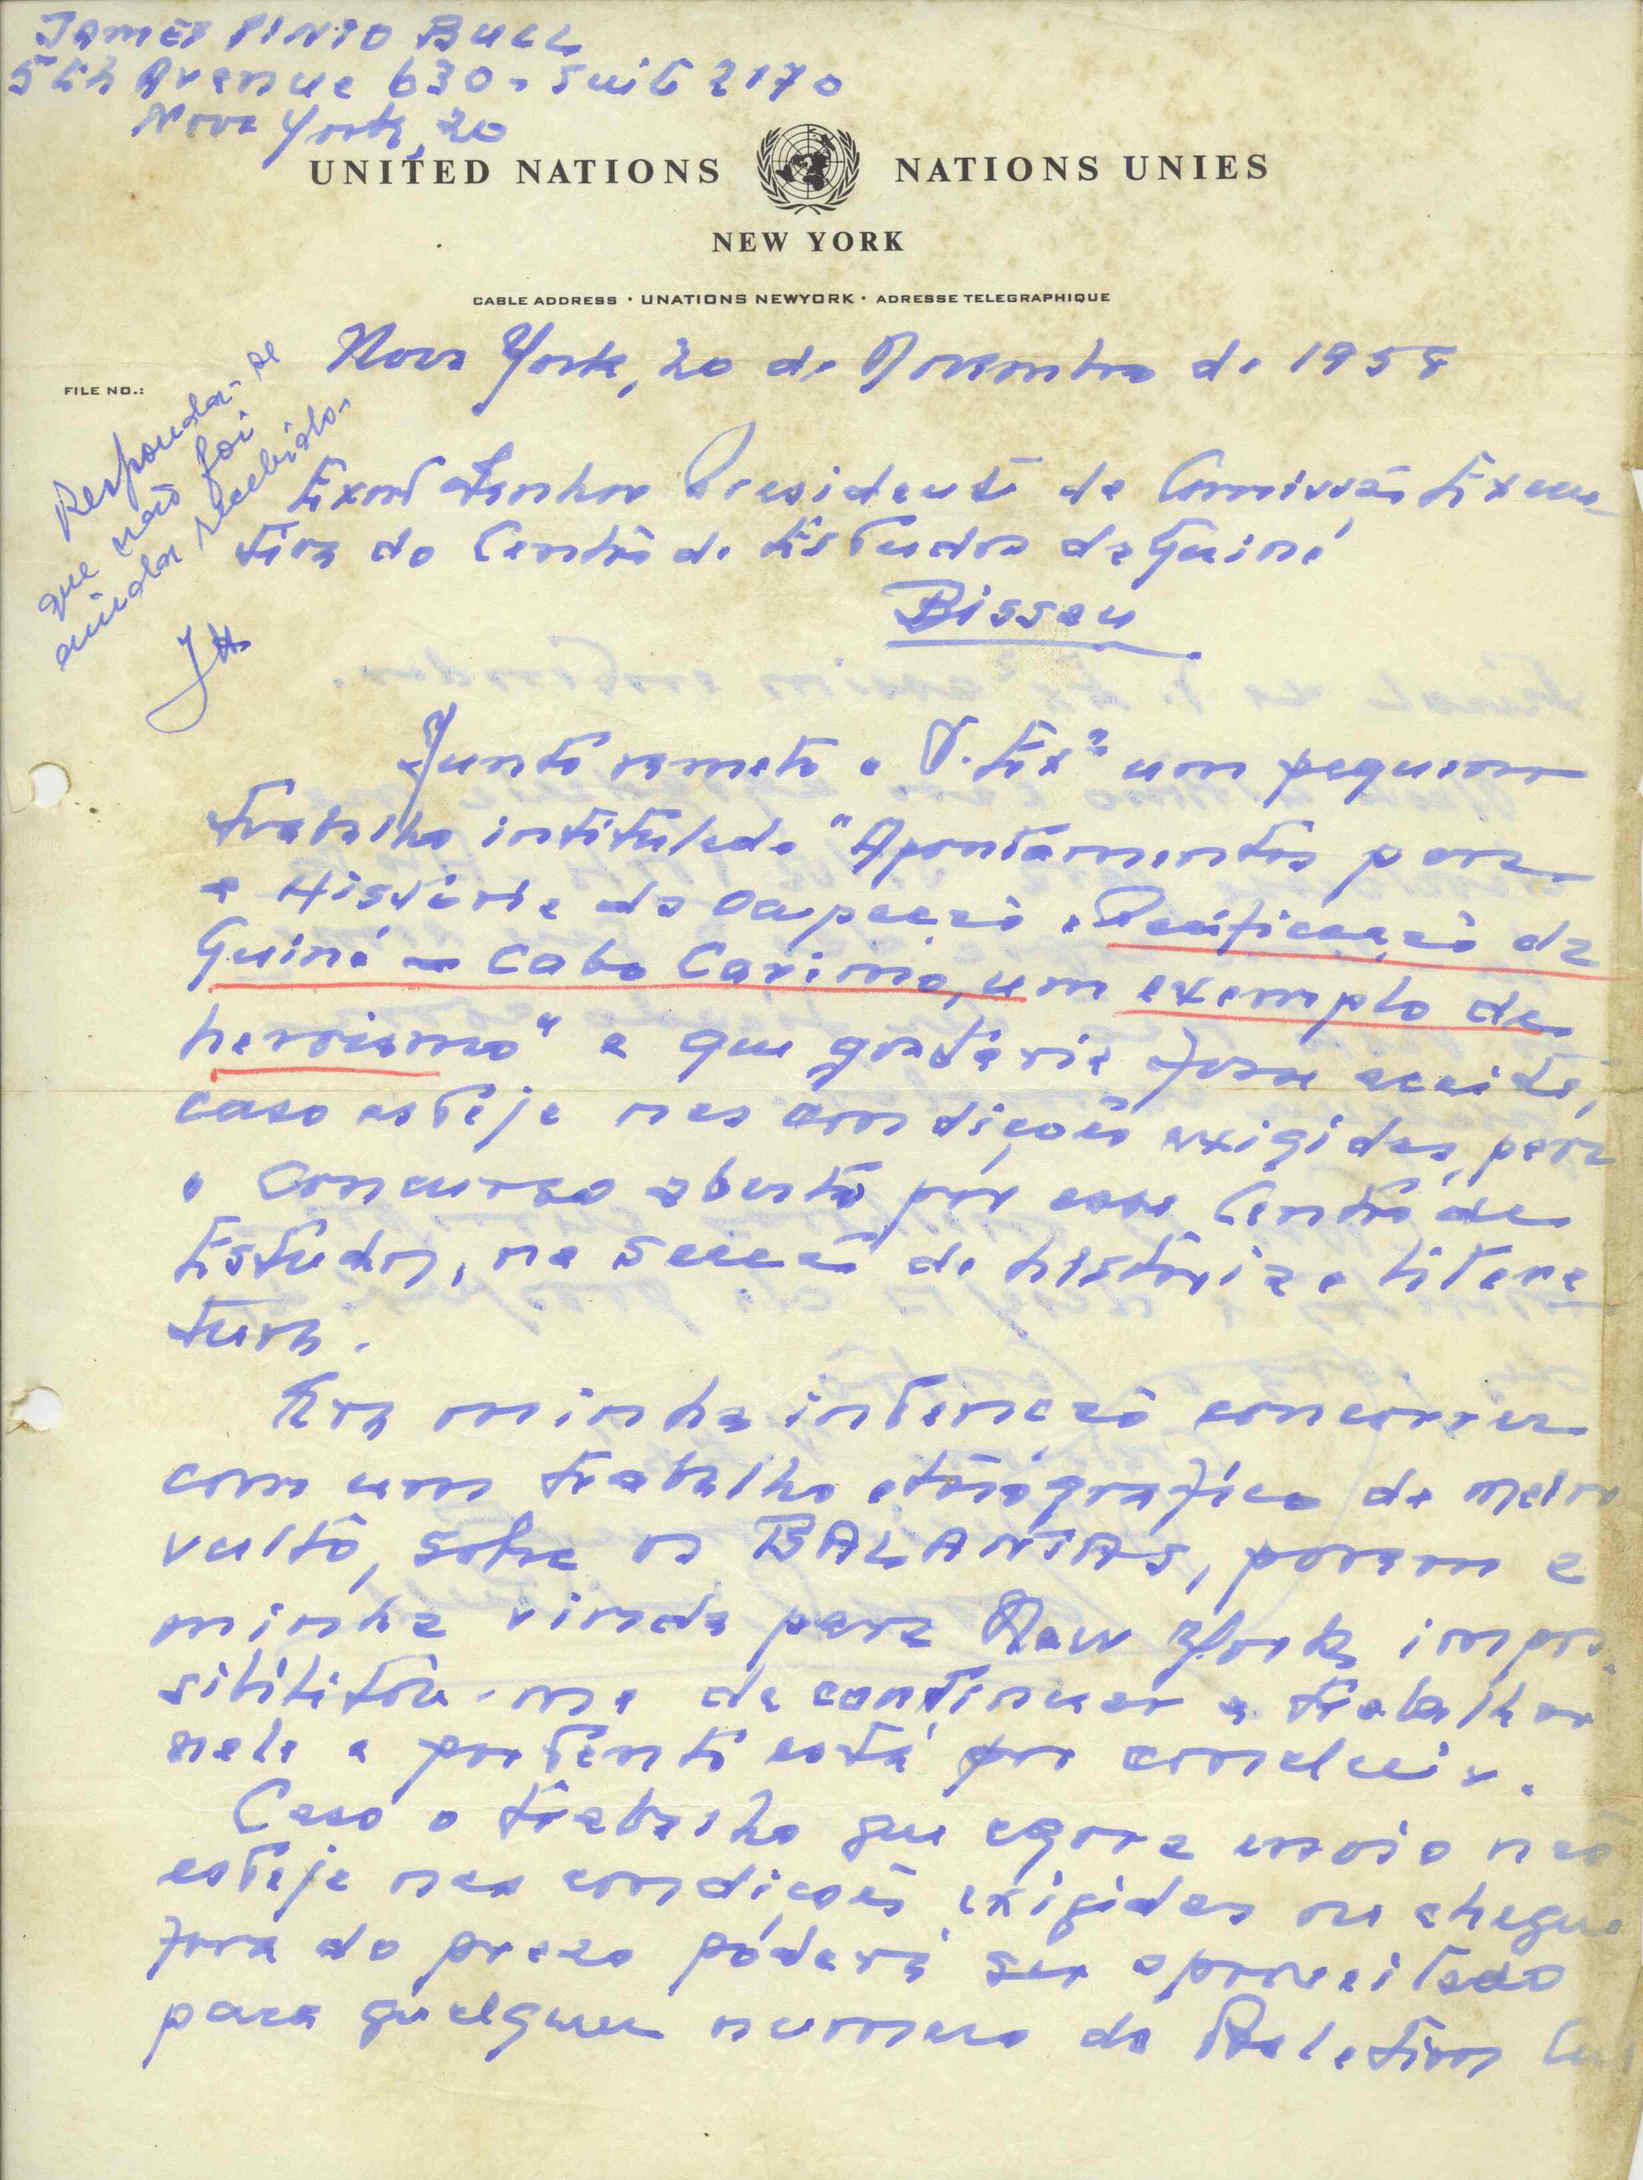 James Pinto Bull
5th Avenue 630 - Suite 2170
Nova York, 20
UNITED NATIONS NATIONS UNIES
NEW YORK
CABLE ADDRESS · UNATIONS NEWYORK · ADRESSE TELEGRAPHIQUE
Nova York, 20 de Novembro de 1958
FILE NO.:
Responda-se
que não foi
ainda recebido.
Exmº Senhor Presidente da Comissão Execu-
tiva do Centro de Estudos da Guiné
Bissau
Junto remeto a V. Exª um pequeno
trabalho intitulado "Apontamentos para
a História da Ocupação e Pacificação da
Guiné - Cabo Carimo, um exemplo de
heroismo" e que gostaria fosse aceite,
caso esteja nas condições exigidas, para
o Concurso aberto por esse Centro de
Estudos, na secção de história e litera
tura.
Era minha intenção concorrer
com um trabalho etnográfico de maior
vulto, sobre os BALANTAS, porem a
minha vinda para New York impos-
sibilitou-me de continuar a trabalhar
nele e portanto está por concluir.
Caso o trabalho que agora envio não
esteja nas condições exigidas ou chegue
fora do prazo poderá ser aproveitado
para qualquer numero do Boletim Cul